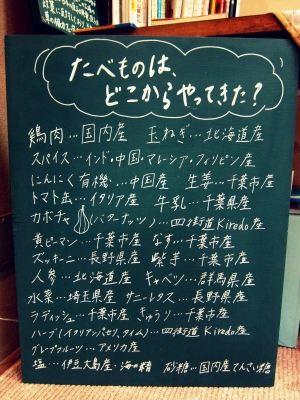 たべものは、
どこからやってきた?
鶏肉…国内産 玉ねぎ…北海道産
スパイス…インド・中国・マレーシア・フィリピン産
にんにく有機…中国産 生姜…千葉市産
トマト缶…イタリア産 牛乳…千葉県産
カボチャ(バターナッツ)…四街道Kiredo産
黄ピーマン…千葉市産 なす…千葉市産
ズッキーニ…長野県産 紫芋…千葉市産
人参…北海道産 キャベツ…群馬県産
水菜…埼玉県産 サニーレタス…長野県産
ラディッシュ…千葉市産 きゅうり…千葉市産
ハーブ(イタリアンパセリ、タイム)…四街道Kiredo産
グレープフルーツ…アメリカ産
塩…伊豆大島産・海の精 砂糖…国内産てんさい糖